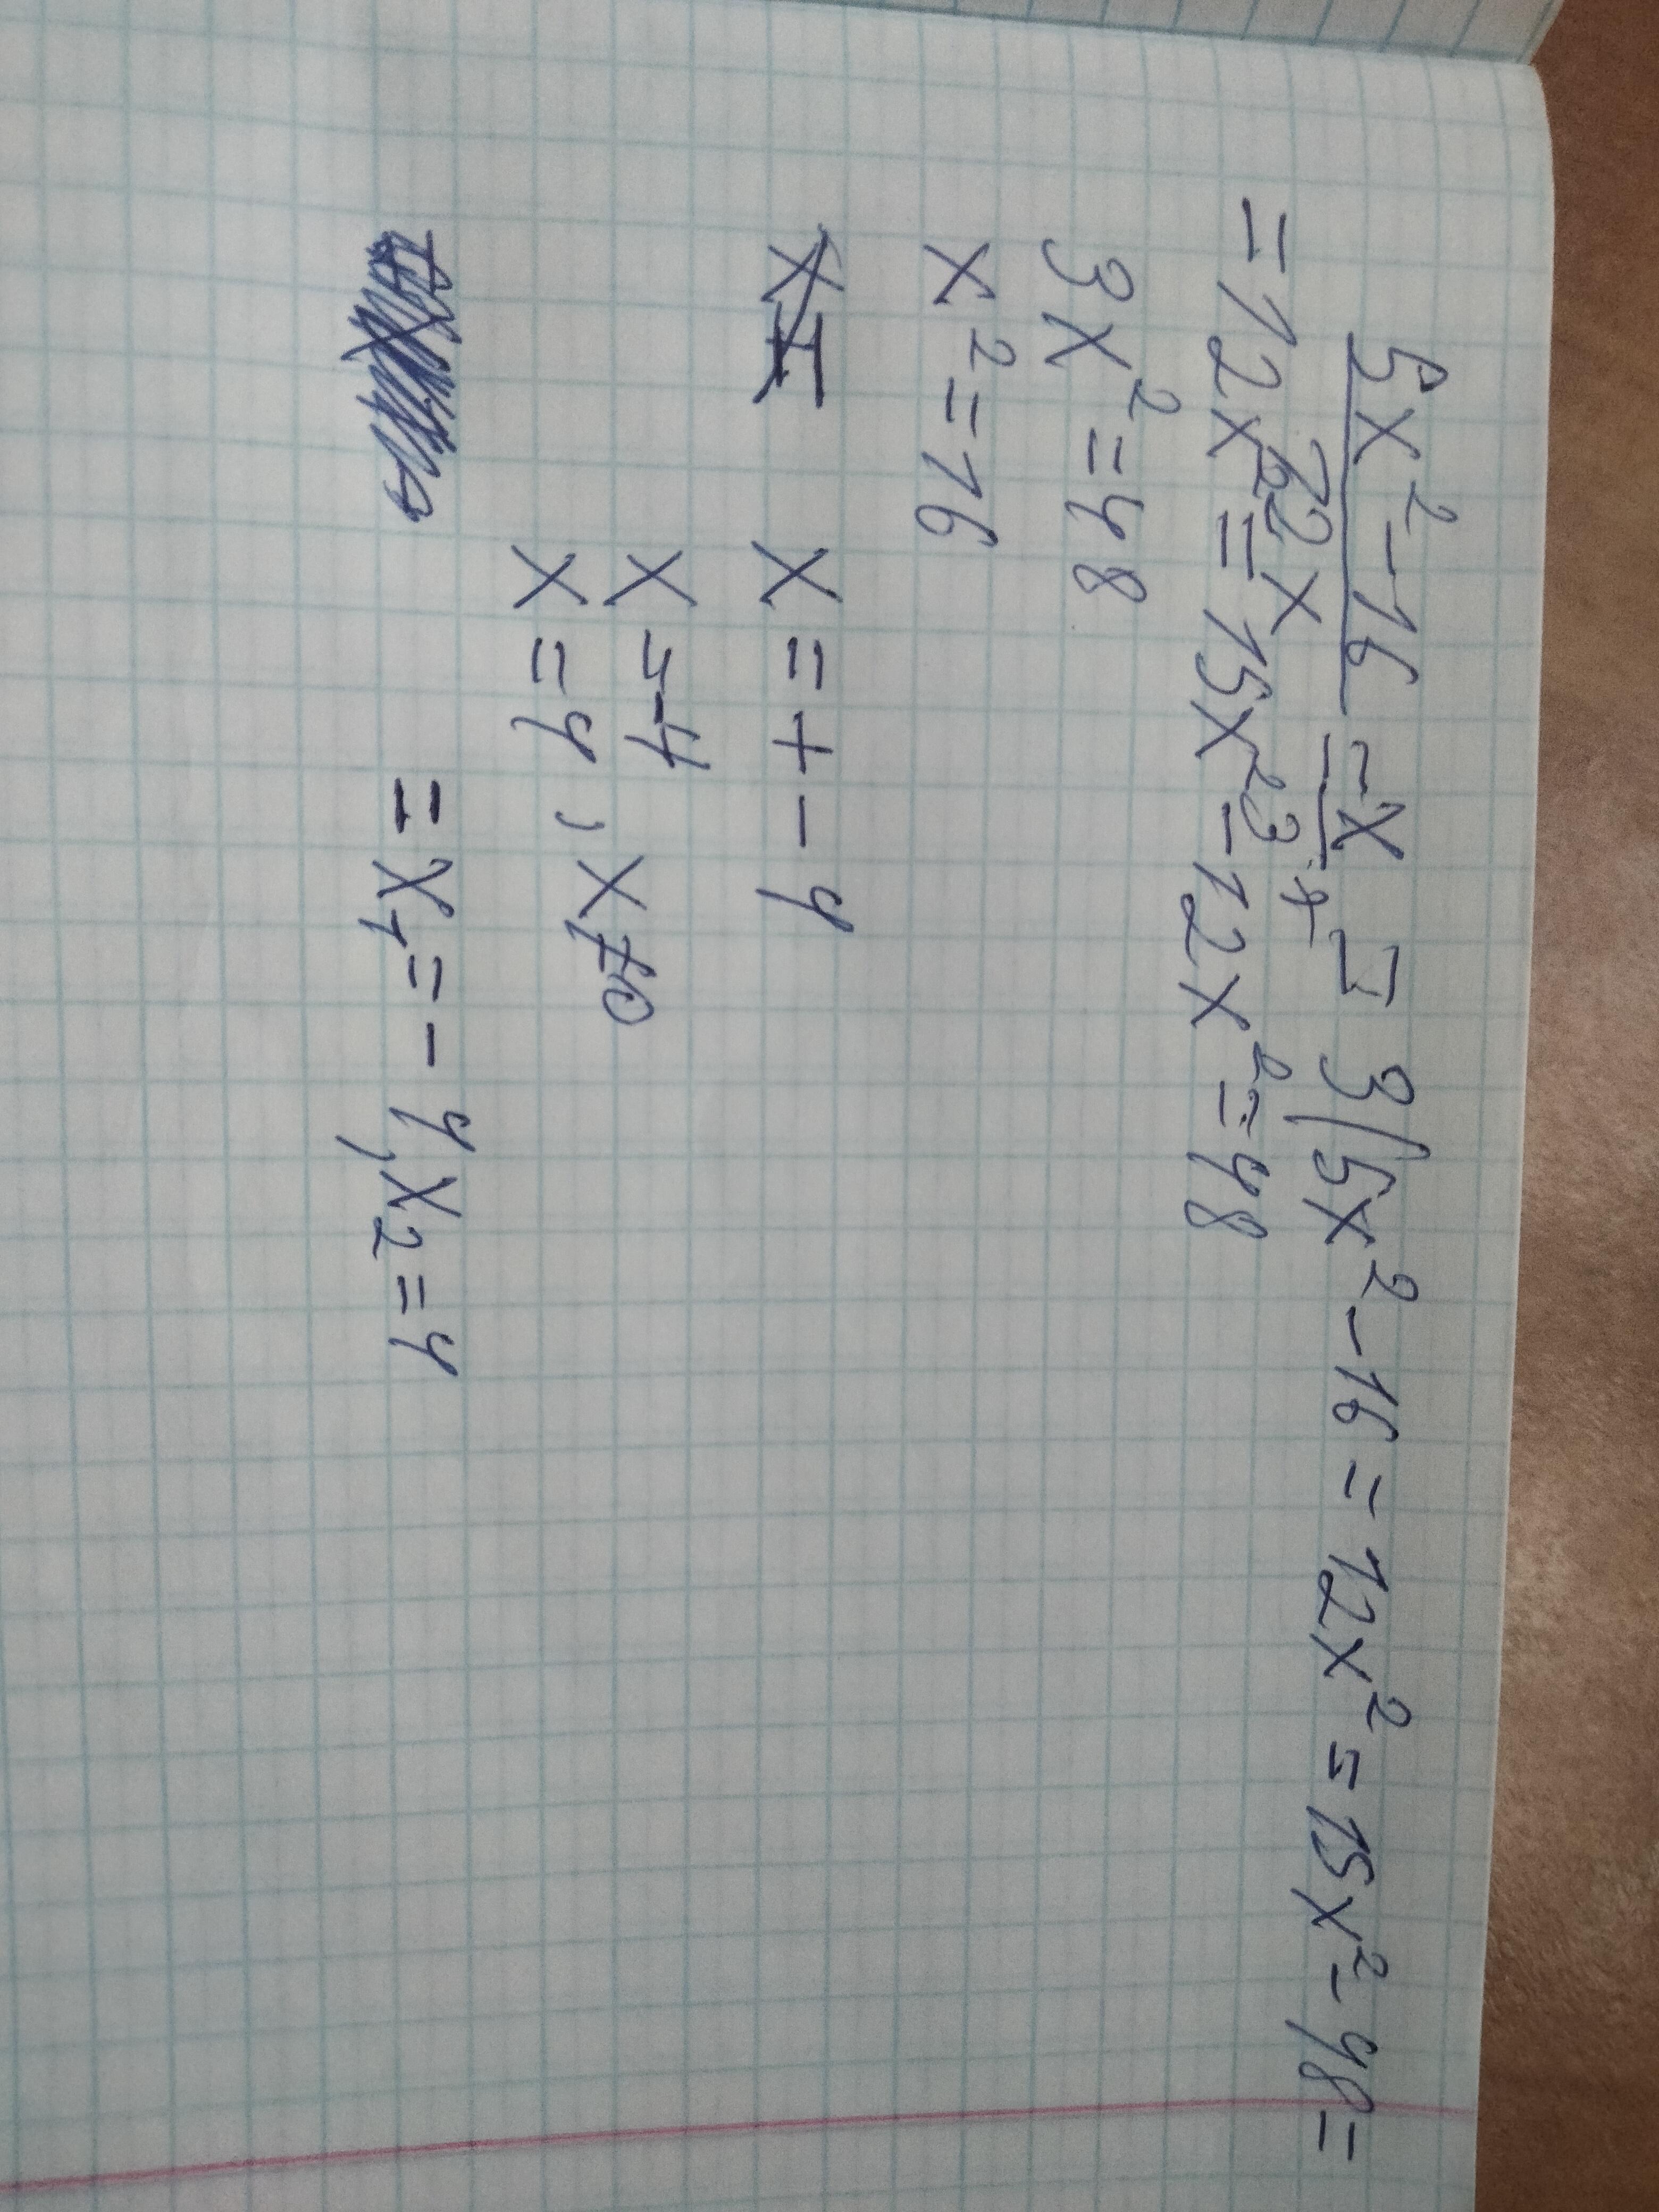 5x²-16 = x = 3(5x²-16 = 12x² = 15x²-48 =
12x 3
= 12x² = 15x² - 12x² = 48
3x² = 48
x² = 16
x = + - 4
x = -4
x = 4, x ≠ 0
= x₁ = - 4, x₂ = 4